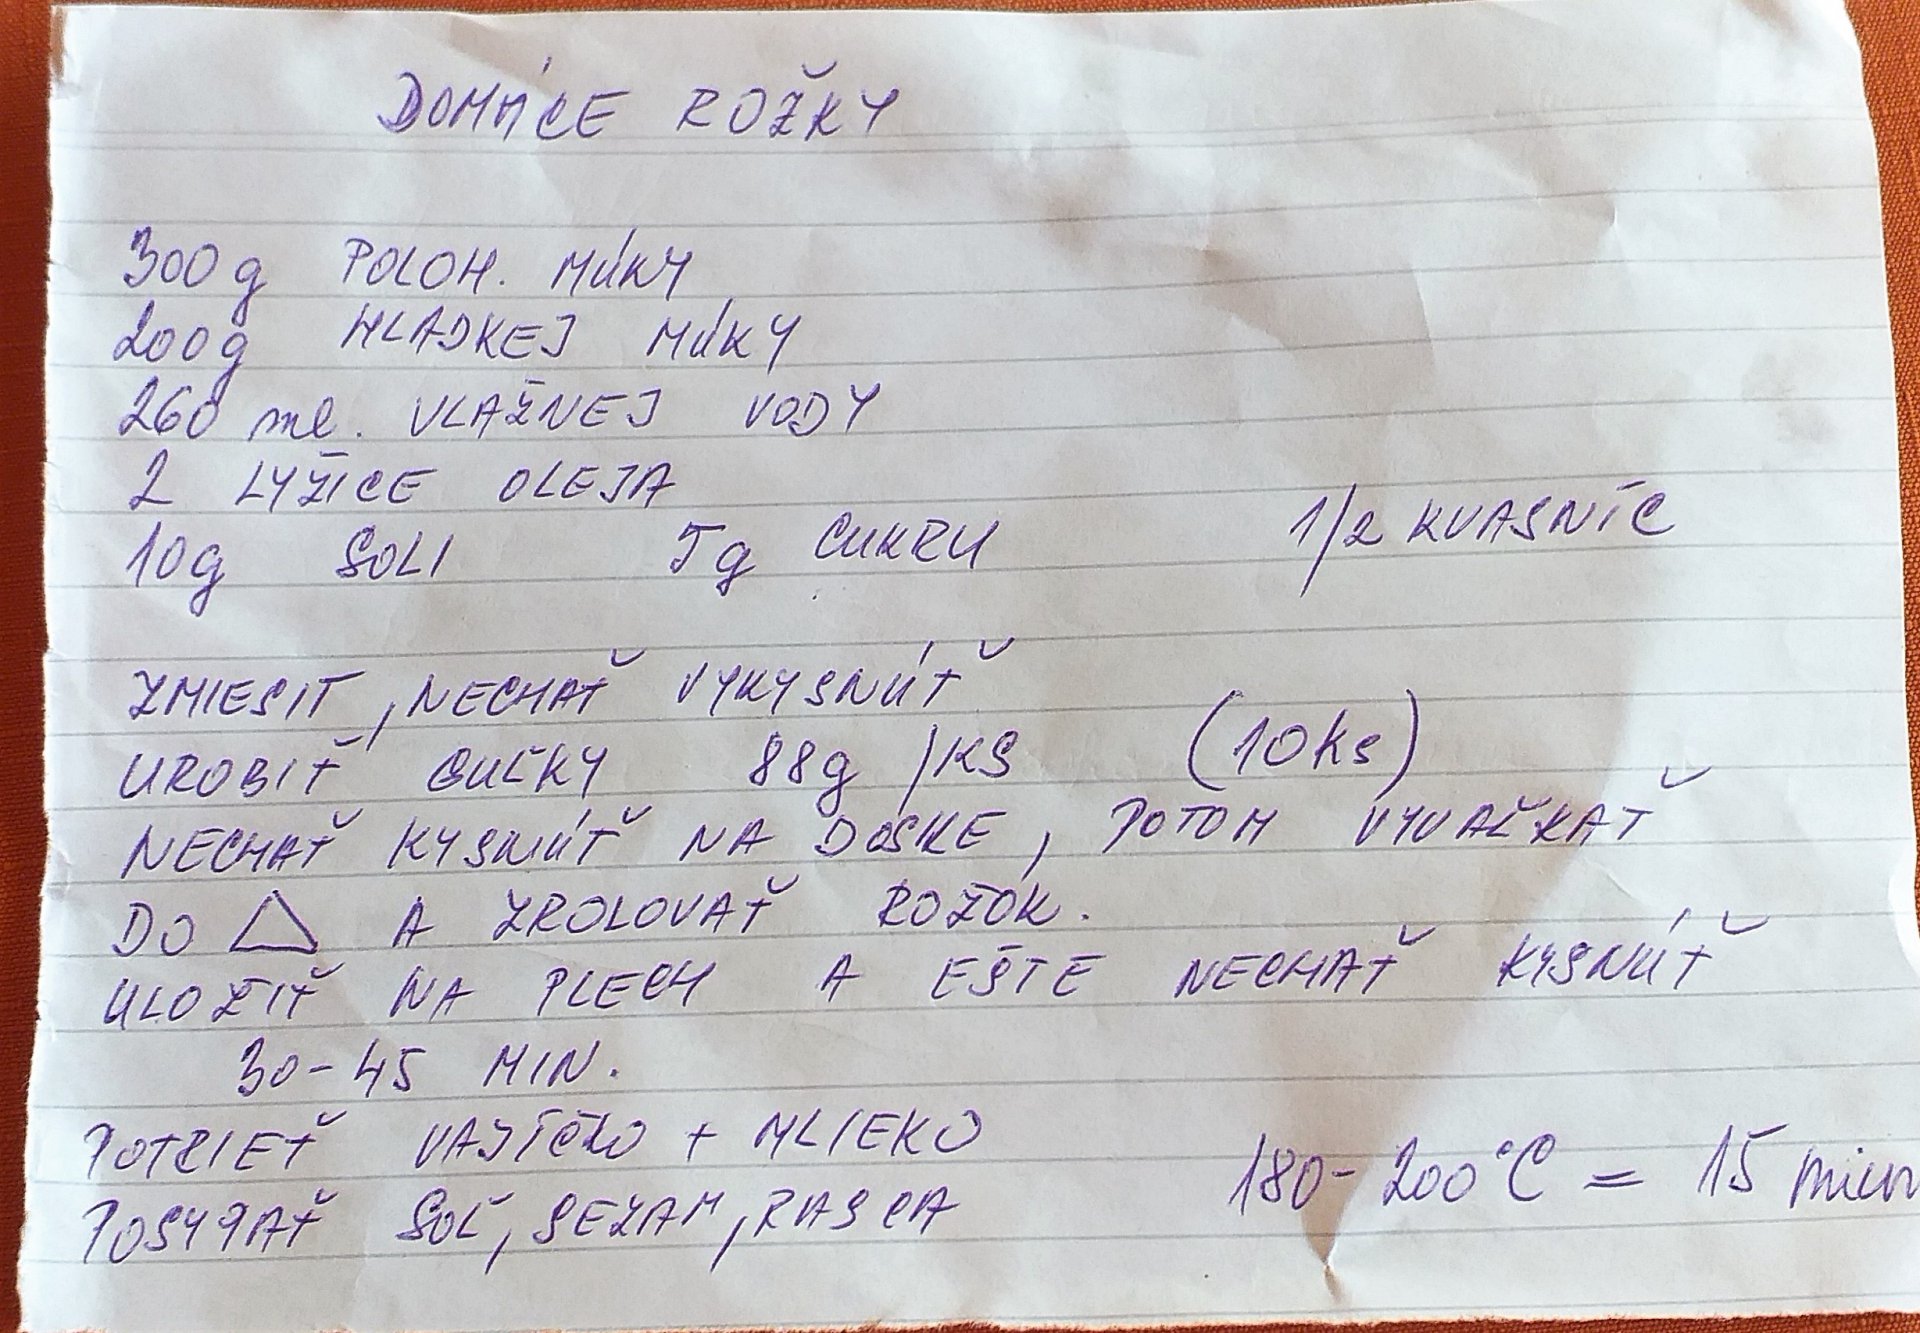 DOMÁCE ROŽKY
300g POLOH. MÚKY
200g HLADKEJ MÚKY
260 ml. VLAŽNEJ VODY
2 LYŽICE OLEJA
10g SOLI 5g CUKRU 1/2 KVASNÍC
ZMIESIT, NECHAŤ VYKYSNÚŤ
UROBIŤ GUĽKY 88g /KS (10ks)
NECHAŤ KYSNÚŤ NA DOSKE, POTOM VYVAĽKAŤ
DO △ A ZROLOVAŤ ROŽOK.
ULOŽIŤ NA PLECH A EŠTE NECHAŤ KYSNÚŤ
30-45 MIN.
POTRIEŤ VAJÍČKO + MLIEKO
POSYPAŤ SOĽ, SEZAM, RASCA 180-200°C = 15 min